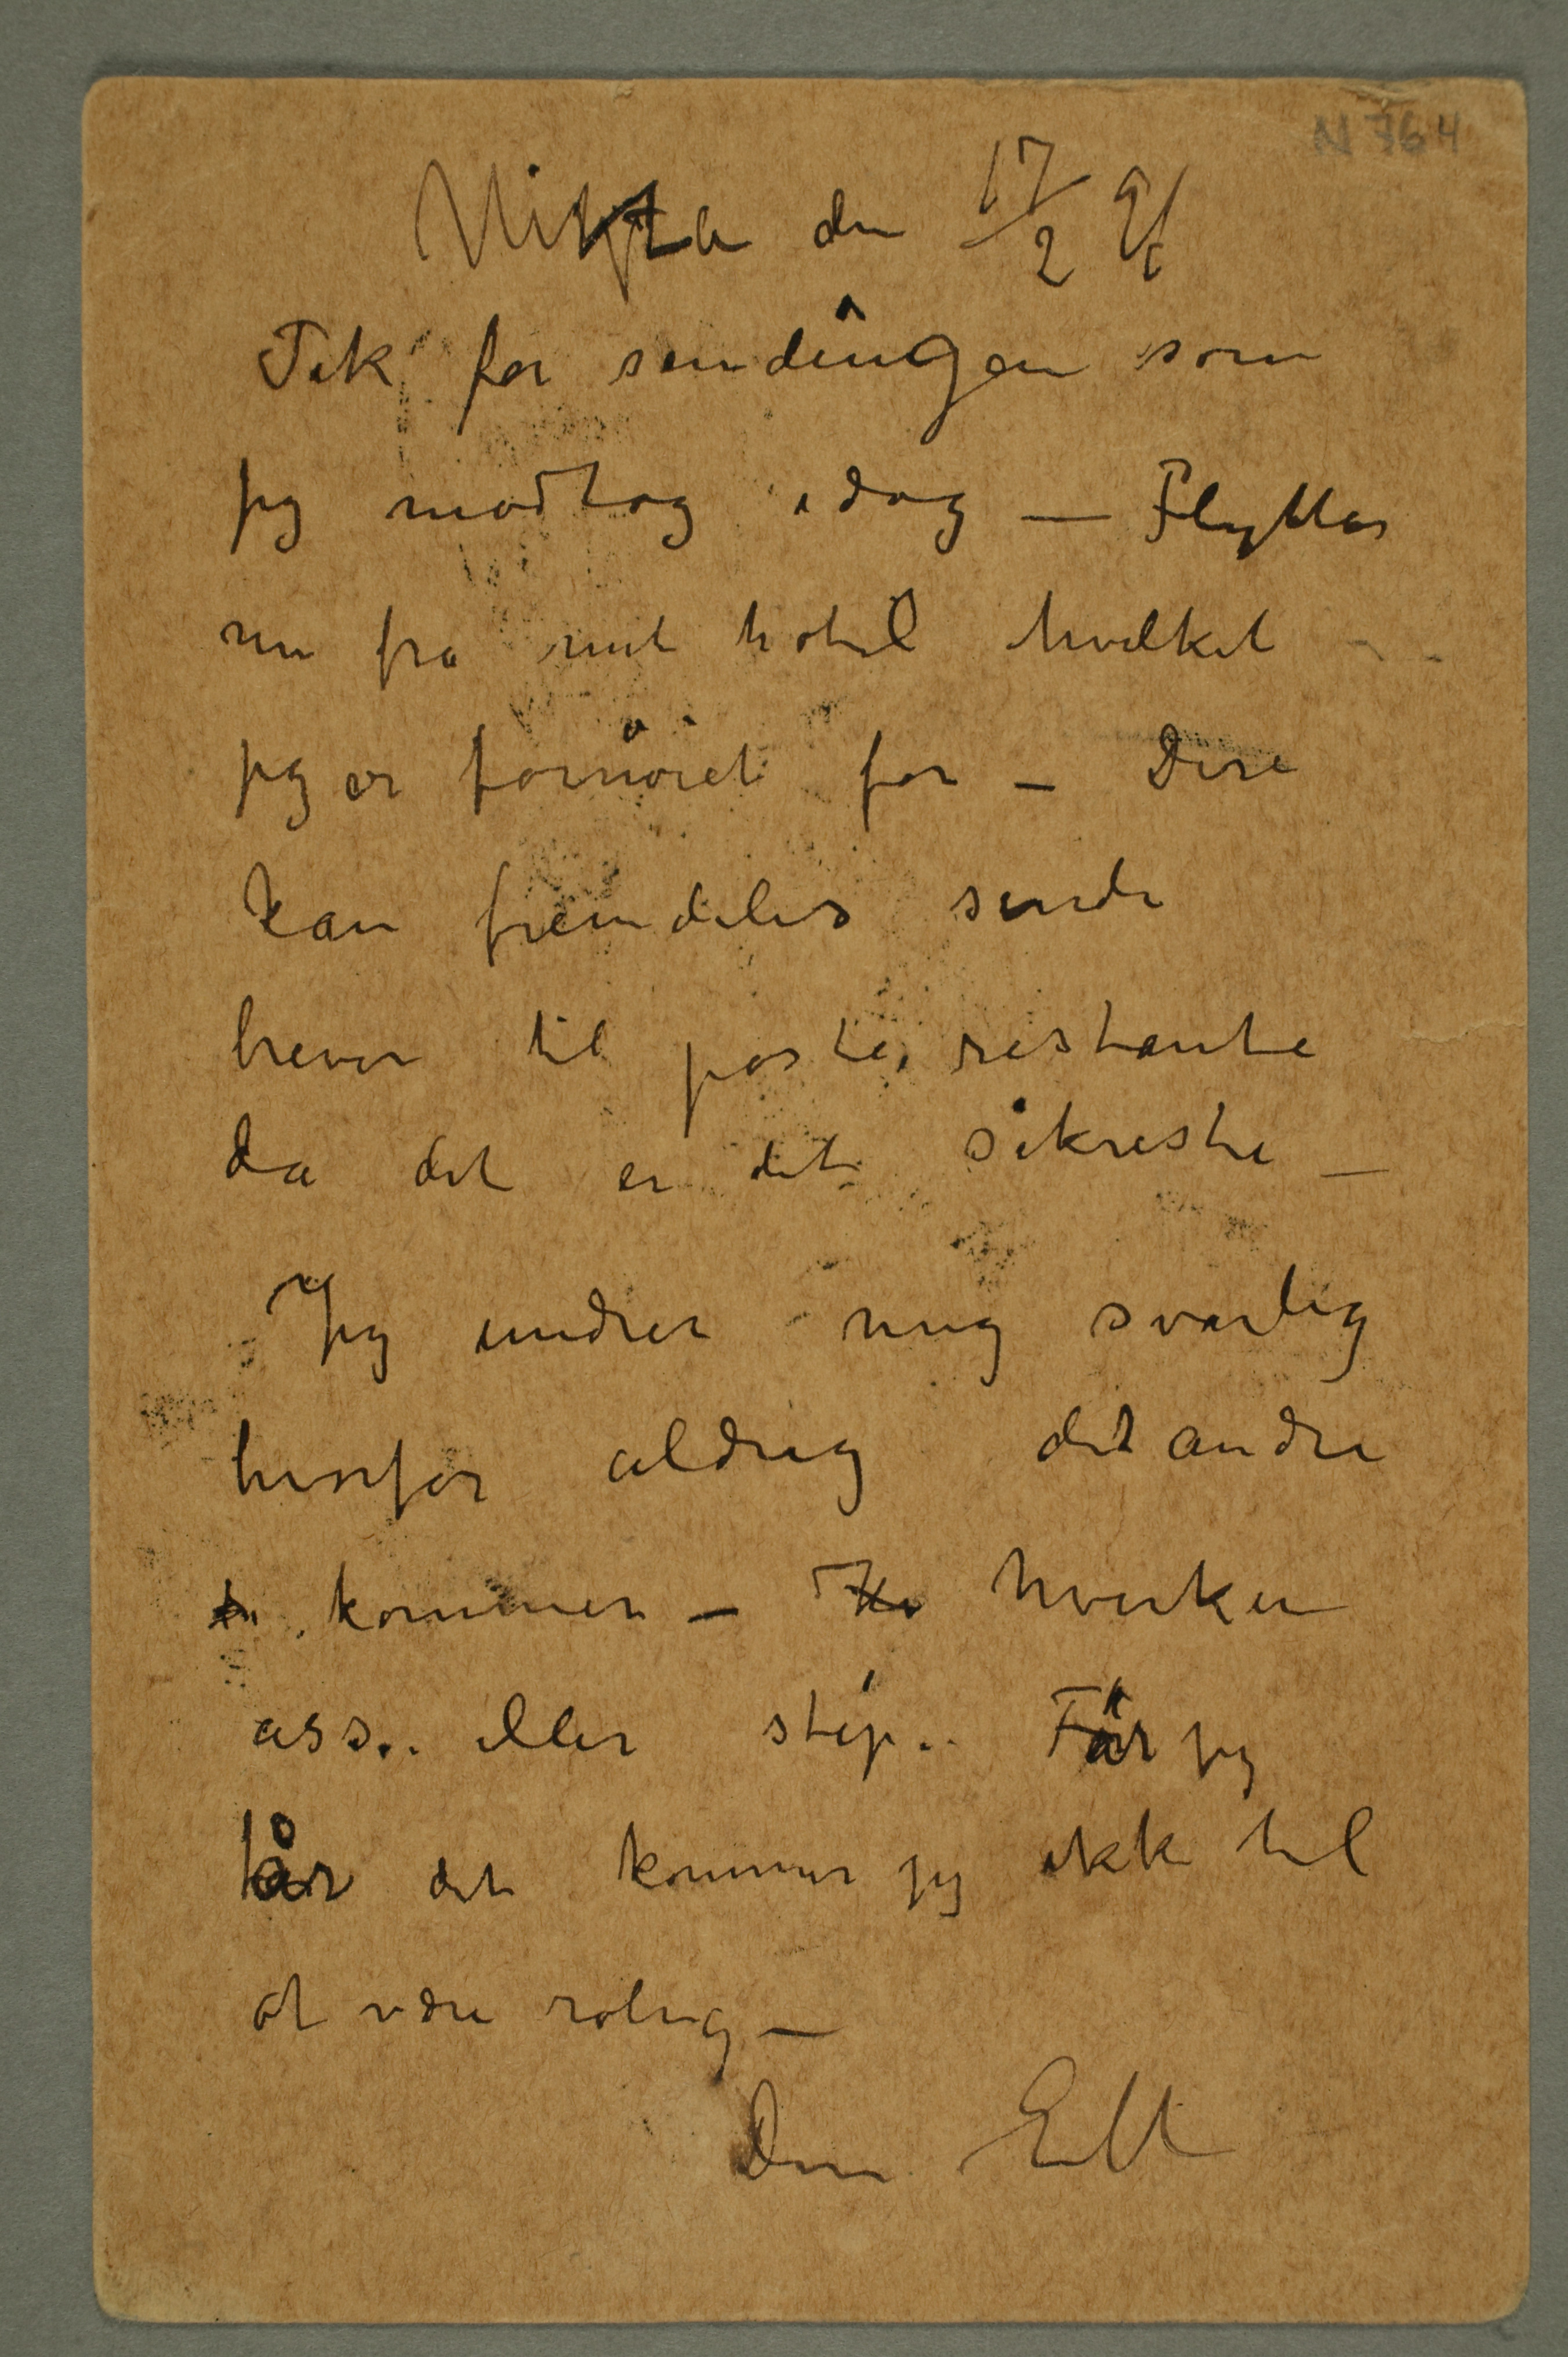 N 764
Nizza den 17/2 91
Tak for sendingen som
jeg modtog idag — Flytter
nu fra mit hotel hvilket
jeg er fornöiet for — Dere
kan fremdeles sende
brever til poste, restante
da det er det sikreste —
Jeg undrer mig svarlig
hvorfor aldrig det andre
kommer — hverken
ass.. eller stip.. Får jeg
det kommer jeg ikke til
at være rolig —
Din